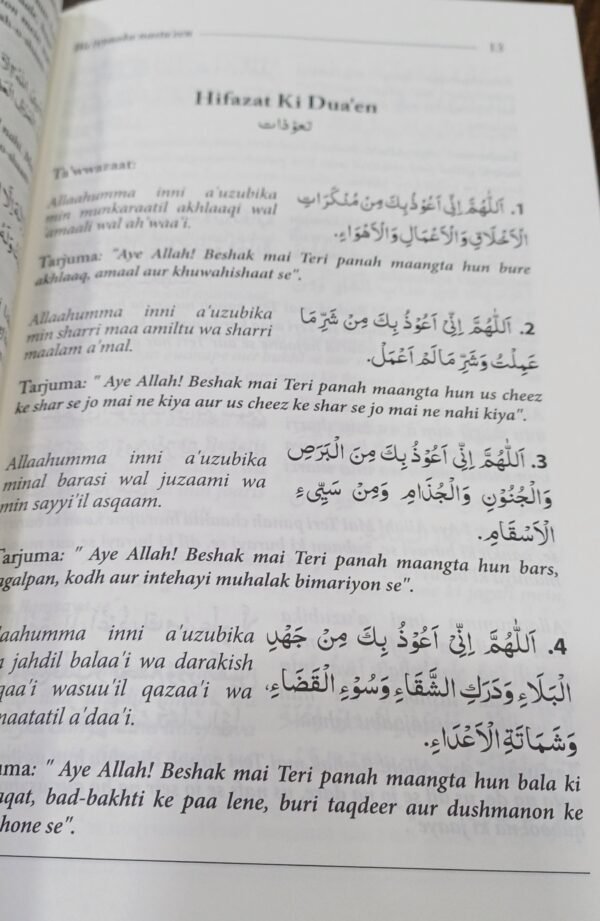 13
Hifazat Ki Dua'en
تعوّذات
Ta'wwazaat:
Allaahumma inni a'uzubika
min munkaraatil akhlaaqi wal
amaali wal ah'waa'i.
1. اَللّٰهُمَّ اِنِّىْ اَعُوْذُ بِكَ مِنْ مُنْكَرَاتِ
الْاَخْلَاقِ وَالْاَعْمَالِ وَالْاَهْوَاءِ.
Tarjuma: "Aye Allah! Beshak mai Teri panah maangta hun bure
akhlaaq, amaal aur khuwahishaat se".
Allaahumma inni a'uzubika
min sharri maa amiltu wa sharri
maalam a'mal.
2. اَللّٰهُمَّ اِنِّىْ اَعُوْذُ بِكَ مِنْ شَرِّ مَا
عَمِلْتُ وَشَرِّ مَا لَمْ اَعْمَلْ.
Tarjuma: " Aye Allah! Beshak mai Teri panah maangta hun us cheez
ke shar se jo mai ne kiya aur us cheez ke shar se jo mai ne nahi kiya".
Allaahumma inni a'uzubika
minal barasi wal juzaami wa
min sayyi'il asqaam.
3. اَللّٰهُمَّ اِنِّىْ اَعُوْذُ بِكَ مِنَ الْبَرَصِ
وَالْجُنُوْنِ وَالْجُذَامِ وَمِنْ سَيِّىءِ
الْاَسْقَامِ.
Tarjuma: " Aye Allah! Beshak mai Teri panah maangta hun bars,
agalpan, kodh aur intehayi muhalak bimariyon se".
aahumma inni a'uzubika
jahdil balaa'i wa darakish
qaa'i wasuu'il qazaa'i wa
maatatil a'daa'i.
4. اَللّٰهُمَّ اِنِّىْ اَعُوْذُ بِكَ مِنْ جَهْدِ
الْبَلَاءِ وَدَرَكِ الشَّقَاءِ وَسُوْءِ الْقَضَاءِ،
وَشَمَاتَةِ الْاَعْدَاءِ.
uma: " Aye Allah! Beshak mai Teri panah maangta hun bala ki
aqat, bad-bakhti ke paa lene, buri taqdeer aur dushmanon ke
hone se".